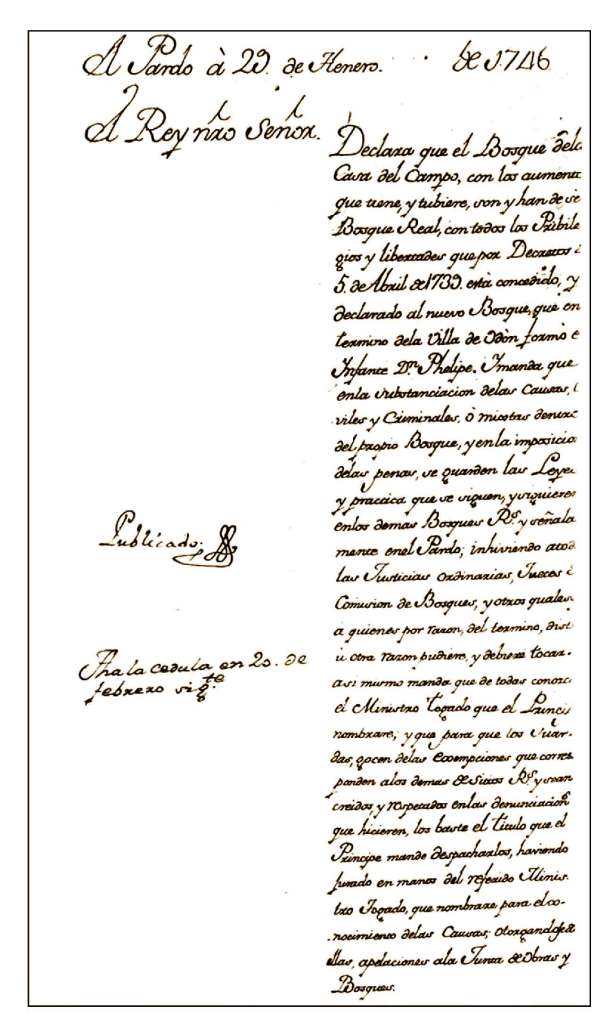 El Pardo à 29. de Henero. de 1746
El Rey nro Señor.
Declara que el Bosque dela
Casa del Campo, con los aumentos
que tiene, y tubiere, son y han de se
Bosque Real, con todos los Pribile
gios y libertades que por Decretos
5. de Abril de 1739. està concedido, y
declarado al nuevo Bosque, que en
termino dela Villa de Odòn formò e
Infante Dn. Phelipe. Imanda que
enla substanciacion delas Causas,
viles y Criminales, ò mixtas denunc
del propio Bosque, y en la imposicio
delas penas, se guarden las Leye
y practica que se siguen, y siguieren
enlos demas Bosques Rs. y señala
mente enel Pardo; inhiviendo atod
las Justicias ordinarias, Jueces
Comision de Bosques, y otros quales
a quienes por razon, del termino, dist
u otra razon pudiere, y debiere tocar.
asi mismo manda que de todas conozc
el Ministro Togado que el Princi
nombrare; y que para que los Guar-
das, gocen delas Exempciones que corres
ponden alos demas de Sitios Rs. y sean
creidos, y respetados enlas denunciacion
que hicieren, los baste el titulo que el
Principe mande despacharlos, haviendo
jurado en manos del referido Minis
tro Togado, que nombrare para el co-
nocimiento delas Causas; otorgandose de
ellas, apelaciones ala Junta de Obras y
Bosques.
Publicado.
Fha la cedula en 20. de
febrero sigte.